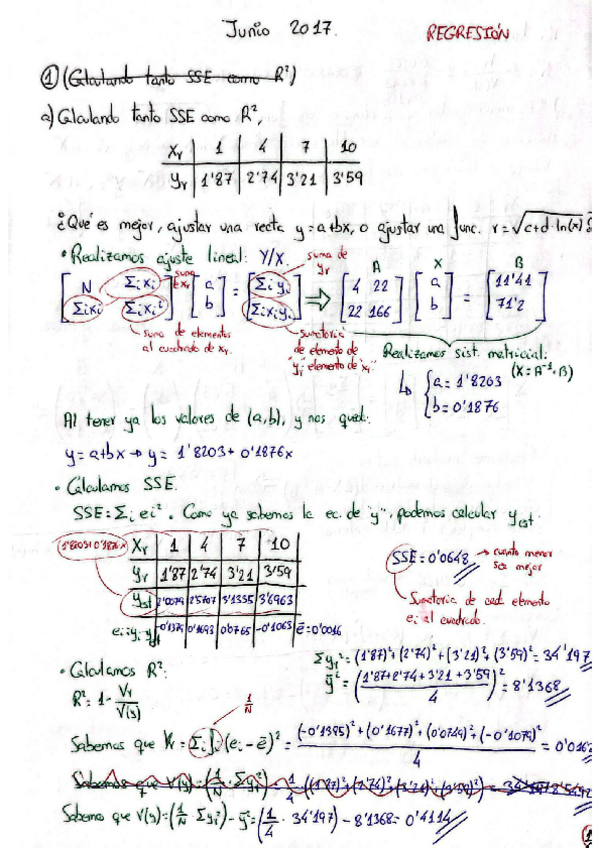 Junio 2017.
REGRESIÓN
① (Calculando tanto SSE como R²)
a) Calculando tanto SSE como R²,
Xr 1 4 7 10
Yr 1'87 2'74 3'21 3'59
¿Qué es mejor, ajustar una recta y=a+bx, o ajustar una func. r=√(c+d·ln(x))
• Realizamos ajuste lineal: Y/X.
suma de yr
suma xr
A X B
[N Σixi; Σixi Σixi²] [a; b] = [Σiyi; Σixiyi] ⇒ [4 22; 22 166] [a; b] = [11'41; 71'2]
suma de elementos al cuadrado de xr.
Sumatoria de elemento de "yi" elemento de "xr"
Realizamos sist. matricial: (X=A⁻¹·B)
↳ {a=1'8203
b=0'1876
Al tener ya los valores de (a,b), y nos qued:
y=a+bx → y= 1'8203+0'1876x
• Calculamos SSE.
SSE=Σi ei². Como ya sabemos la ec. de "y", podemos calcular yest
(1'8203+0'1876x)
Xr 1 4 7 10
Yr 1'87 2'74 3'21 3'59
yest 2'0079 2'5707 3'1335 3'6963
-0'1379 0'1693 0'0765 -0'1063 ē=0'0016
SSE=0'0648 → cuanto menor ser mejor
Sumatoria de cad elemento ei al cuadrado.
• Calculamos R²:
R²=1-Vr/V(y)
Σyr²=(1'87)²+(2'74)²+(3'21)²+(3'59)²=34'197
ȳ²=((1'87+2'74+3'21+3'59)/4)²=8'1368
1/N
Sabemos que Vr=Σi (ei-ē)²=((-0'1395)²+(0'1677)²+(0'0749)²+(-0'1079)²)/4=0'0162
Sabemos que V(y)=(1/N·Σyi²)-ȳ²=(1/4·34'197)-8'1368=0'4114